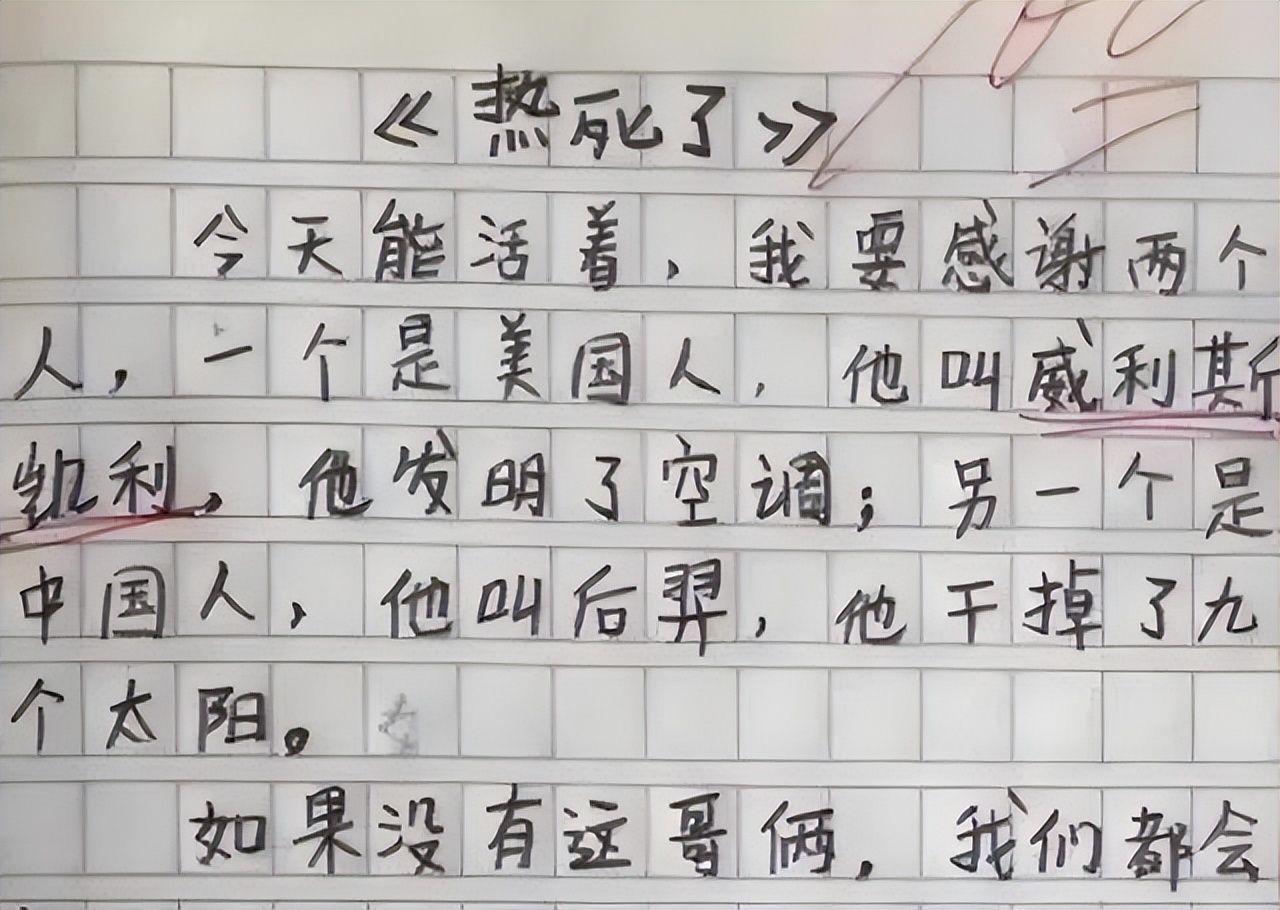 100
《热死了》
今天能活着，我要感谢两个
人，一个是美国人，他叫威利斯
凯利，他发明了空调；另一个是
中国人，他叫后羿，他干掉了九
个太阳。
如果没有这哥俩，我们都会